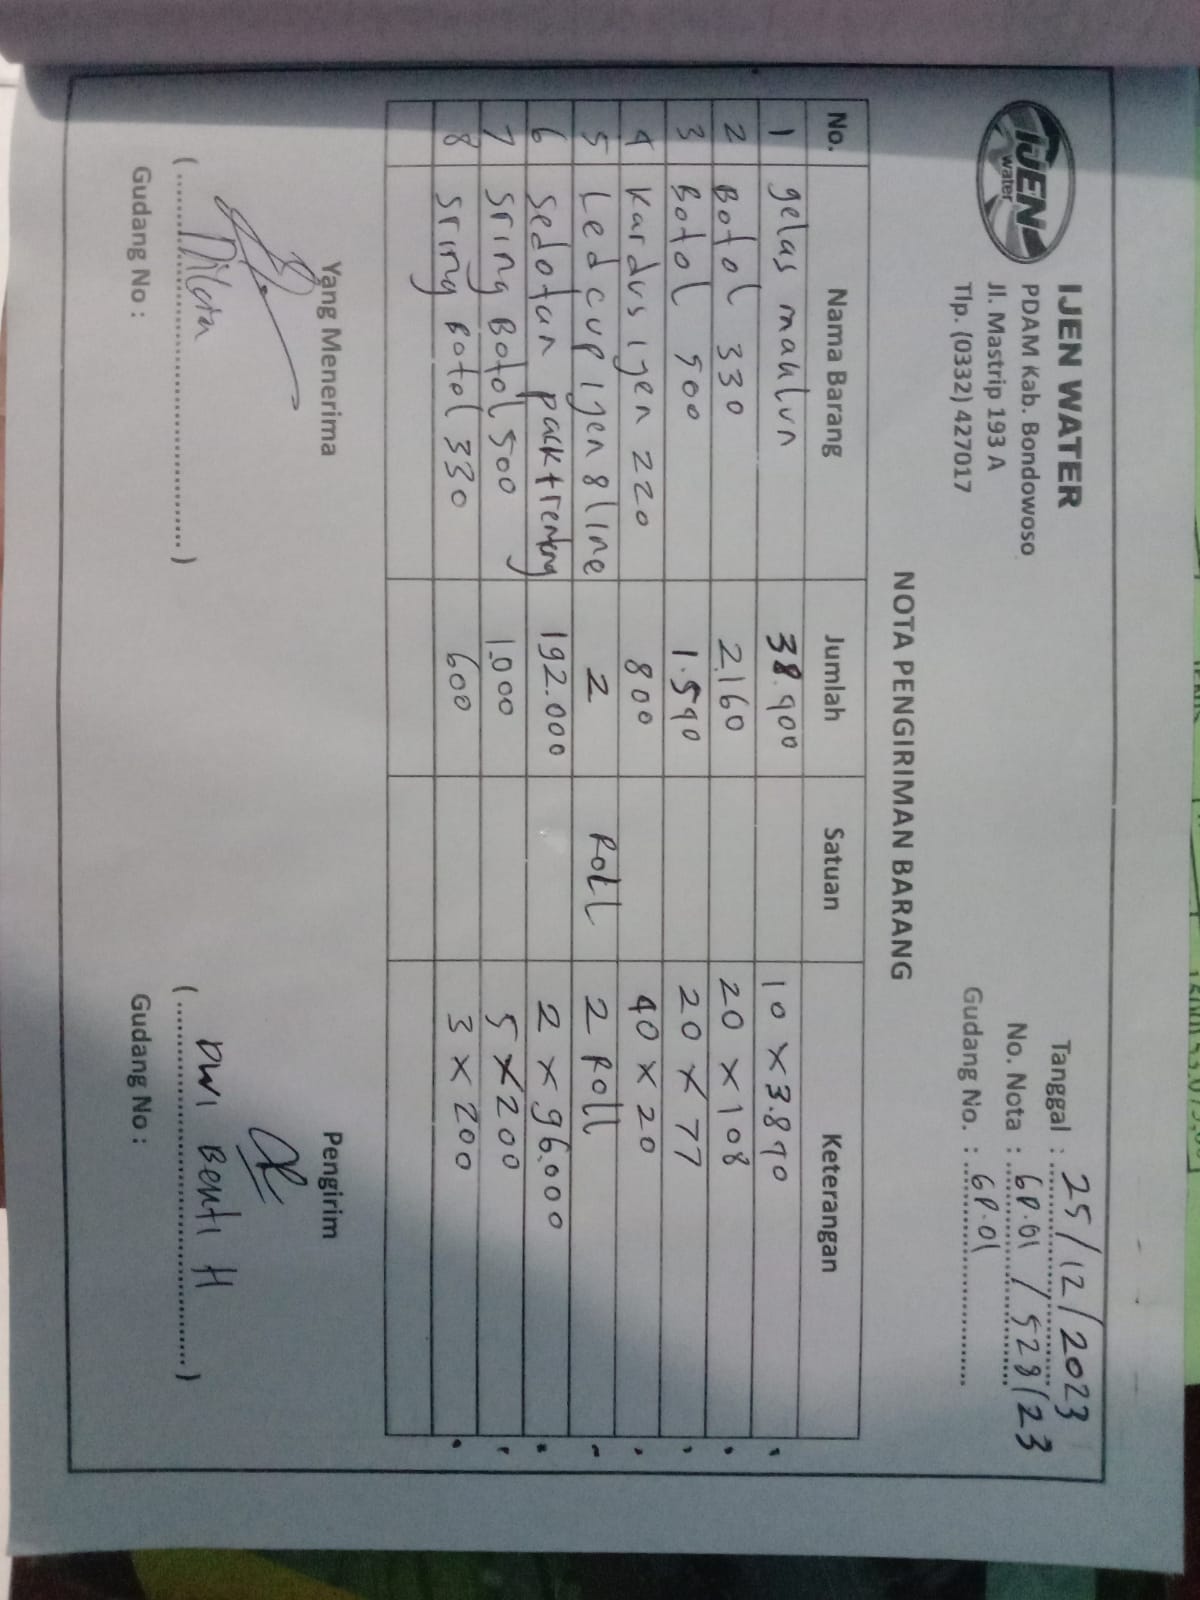 IJEN
water
IJEN WATER
PDAM Kab. Bondowoso
Jl. Mastrip 193 A
Tlp. (0332) 427017
Tanggal : 25/12/2023
No. Nota : 60.01 / 528/23
Gudang No. : 60.01
NOTA PENGIRIMAN BARANG
No. Nama Barang Jumlah Satuan Keterangan
1 gelas maklun 38.900 10 x 3.890
2 Botol 330 2.160 20 x 108
3 Botol 500 1.540 20 x 77
4 Kardus ijen 220 800 40 x 20
5 Led cup ijen 8 line 2 Roll 2 Roll
6 Sedotan pack + renteng 192.000 2 x 96.000
7 Sring Botol 500 1.000 5 x 200
8 Sring Botol 330 600 3 x 200
Yang Menerima Pengirim
(..............................) ( DWI Benti H )
Gudang No : Gudang No :